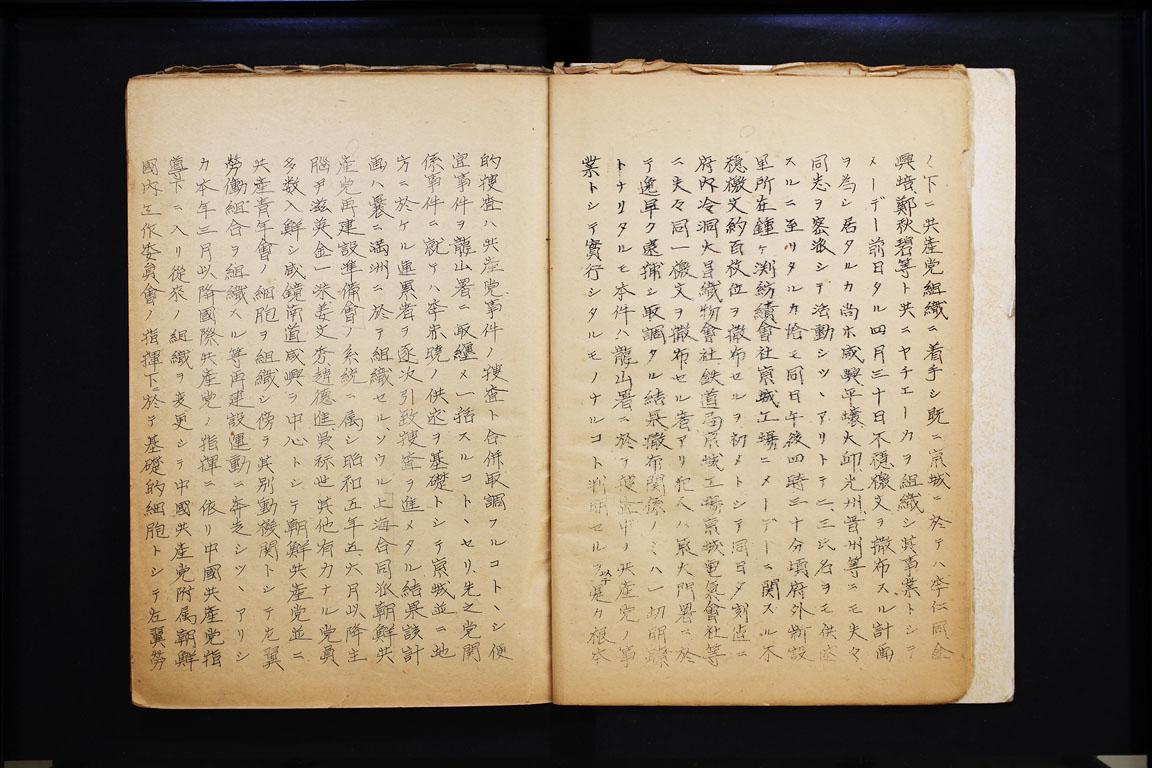 ノ下ニ共産党組織ニ着手シ既ニ京城ニ於テハ李仁同金
興培鄭秋碧等ト共ニヤチエーカヲ組織シ其事業トシテ
メーデー前日タル四月三十日不穏檄文ヲ撒布スル計画
ヲ為シ居タルカ尚ホ咸興平壌大邱光州晋州等ニモ夫々
同志ヲ密派シテ活動シツヽアリトテ二、三氏名ヲモ供述
スルニ至リタルカ恰モ同日午後四時三十分頃府外新設
里所在鐘ヶ渕紡績會社京城工場ニメーデーニ関スル不
穏檄文約百枚位ヲ撒布セルヲ初メトシテ同日夕刻迄ニ
府内冷洞大昌織物會社鉄道局京城工場京城電気會社等
ニ夫々同一檄文ヲ撒布セル者アリ犯人ハ東大門署ニ於
テ逸早ク逮捕シ取調タル結果撒布関係ノミハ一切明瞭
トナリタルモ本件ハ龍山署ニ於テ捜査中ノ共産党ノ事
業トシテ実行シタルモノナルコト判明セルヲ以テ是カ根本
的捜査ハ共産党事件ノ捜査ト合併取調フルコトヽシ便
宜事件ヲ龍山署ニ取纏メ一括スルコトヽセリ先之党関
係事件ニ就テハ李赤暁ノ供述ヲ基礎トシテ京城並ニ地
方ニ於ケル連累者ヲ逐次引致捜査ヲ進メタル結果該計
画ハ曩ニ満洲ニ於テ組織セルソウル上海合同派朝鮮共
産党再建設準備會ノ系統ニ属シ昭和五年五、六月以降主
脳尹滋英金一洙姜文秀趙徳進呉称世其他有力ナル党員
多数入鮮シ咸鏡南道咸興ヲ中心トシテ朝鮮共産党並ニ
共産青年會ノ細胞ヲ組織シ傍ヲ其別動機関トシテ左翼
労働組合ヲ組織スル等再建設運動ニ奔走シツヽアリシ
カ本年三月以降國際共産党ノ指揮ニ依リ中國共産党指
導下ニ入リ従来ノ組織ヲ変更シテ中國共産党附属朝鮮
國内工作委員會ノ指揮下ニ於テ基礎的細胞トシテ左翼労